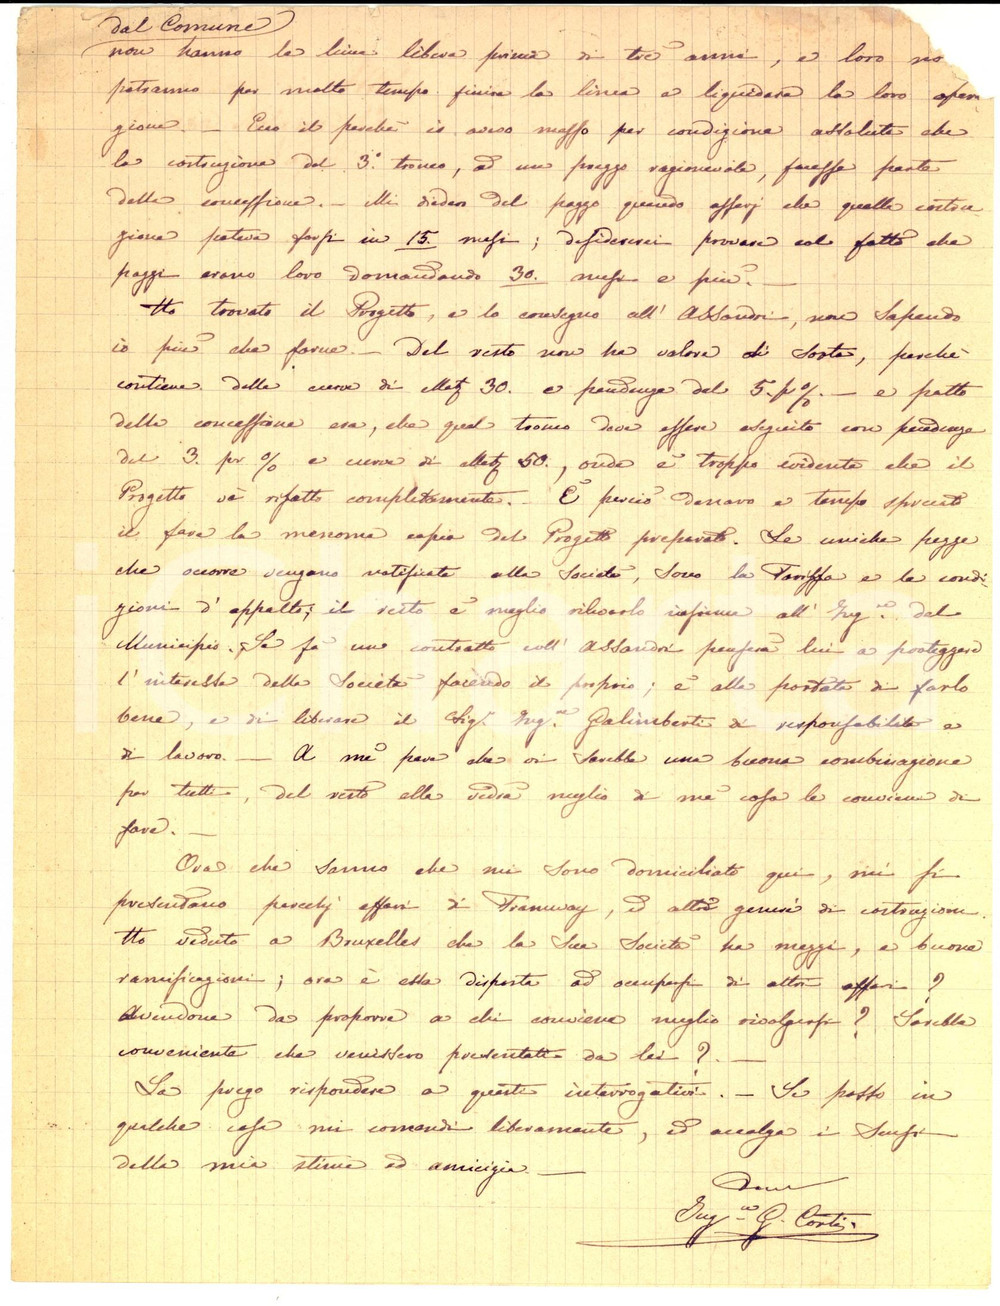 dal Comune
non hanno la linea libera prima di tre anni, e loro no
potranno per molto tempo finire la linea e liquidare la loro opera
zione. — Ecco il perchè io avevo messo per condizione assoluta che
la costruzione del 3.º tronco, ad un prezzo ragionevole, facesse parte
della concessione. — Mi diedero del pazzo quando assersj che quella costru
zione poteva farsi in 15. mesi; desidererei provare col fatto che
pazzi erano loro domandando 30. mesi e più. —
Ho trovato il Progetto, e lo consegno all' Assandri, non sapendo
io più che farne. — Del resto non ha valore di sorta, perchè
contiene delle curve di Met 30. e pendenze del 5. p% — e patto
della concessione era, che quel tronco deve essere eseguito con pendenze
del 3. pr % e curve di Met 50., onde è troppo evidente che il
Progetto và rifatto completamente. È perciò denaro e tempo sprecato
il fare la menoma copia del Progetto preparato. Le uniche pezze
che occorre vengano ratificate alla Società, sono la Tariffa e le condi
zioni d' appalto; il resto è meglio rilevarlo insieme all' Ingre del
Municipio. Se fà un contratto coll' Assandri penserà lui a proteggere
l' interesse della Società facendo il proprio; è alla portata di farlo
bene, e di liberare il Sigr Ingre Galimberti di responsabilità e
di lavoro. — A me pare che vi sarebbe una buona combinazione
per tutti, del resto ella vedrà meglio di me cosa le conviene di
fare. —
Ora che sanno che mi sono domiciliato qui, mi si
presentano parecchj affari di Tramway, ed altri generi di costruzioni.
Ho veduto a Bruxelles che la Sua Società ha mezzi, e buone
ramificazioni; ora è essa disposta ad occuparsi di altri affari?
Avendone da proporre a chi conviene meglio rivolgersi? Sarebbe
conveniente che venissero presentati da lei? —
La prego rispondere a questi interrogativi. — Se posso in
qualche cosa mi comandi liberamente, ed accolga i sensi
della mia stima ed amicizia —
Ingre G. Corti